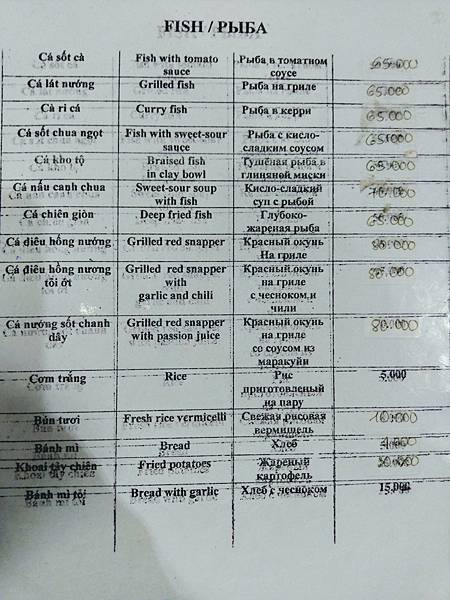 FISH / РЫБА
Cá sốt cà Fish with tomato Рыба в томатном 65.000
sauce соусе
Cá lát nướng Grilled fish Рыба на гриле 65.000
Cà ri cá Curry fish Рыба в керри 65.000
Cá sốt chua ngọt Fish with sweet-sour Рыба с кисло- 65.000
sauce сладким соусом
Cá kho tộ Braised fish Тушёная рыба в 65.000
in clay bowl глиняной миски
Cá nấu canh chua Sweet-sour soup Кисло-сладкий
with fish суп с рыбой
Cá chiên giòn Deep fried fish Глубоко- 65.000
жареная рыба
Cá diêu hồng nướng Grilled red snapper Красный окунь 80.000
На гриле
Cá diêu hồng nương Grilled red snapper Красный окунь 80.000
tỏi ớt with на гриле
garlic and chili с чесноком и
чили
Cá nướng sốt chanh Grilled red snapper Красный окунь 80.000
dây with passion juice на гриле
со соусом из
маракуйи
Cơm trắng Rice Рис 5.000
приготовленый
на пару
Bún tươi Fresh rice vermicelli Свежая рисовая 10.000
вермишель
Bánh mì Bread Хлеб
Khoai tây chiên Fried potatoes Жареный
картофель
Bánh mì tỏi Bread with garlic Хлеб с чесноком 15.000